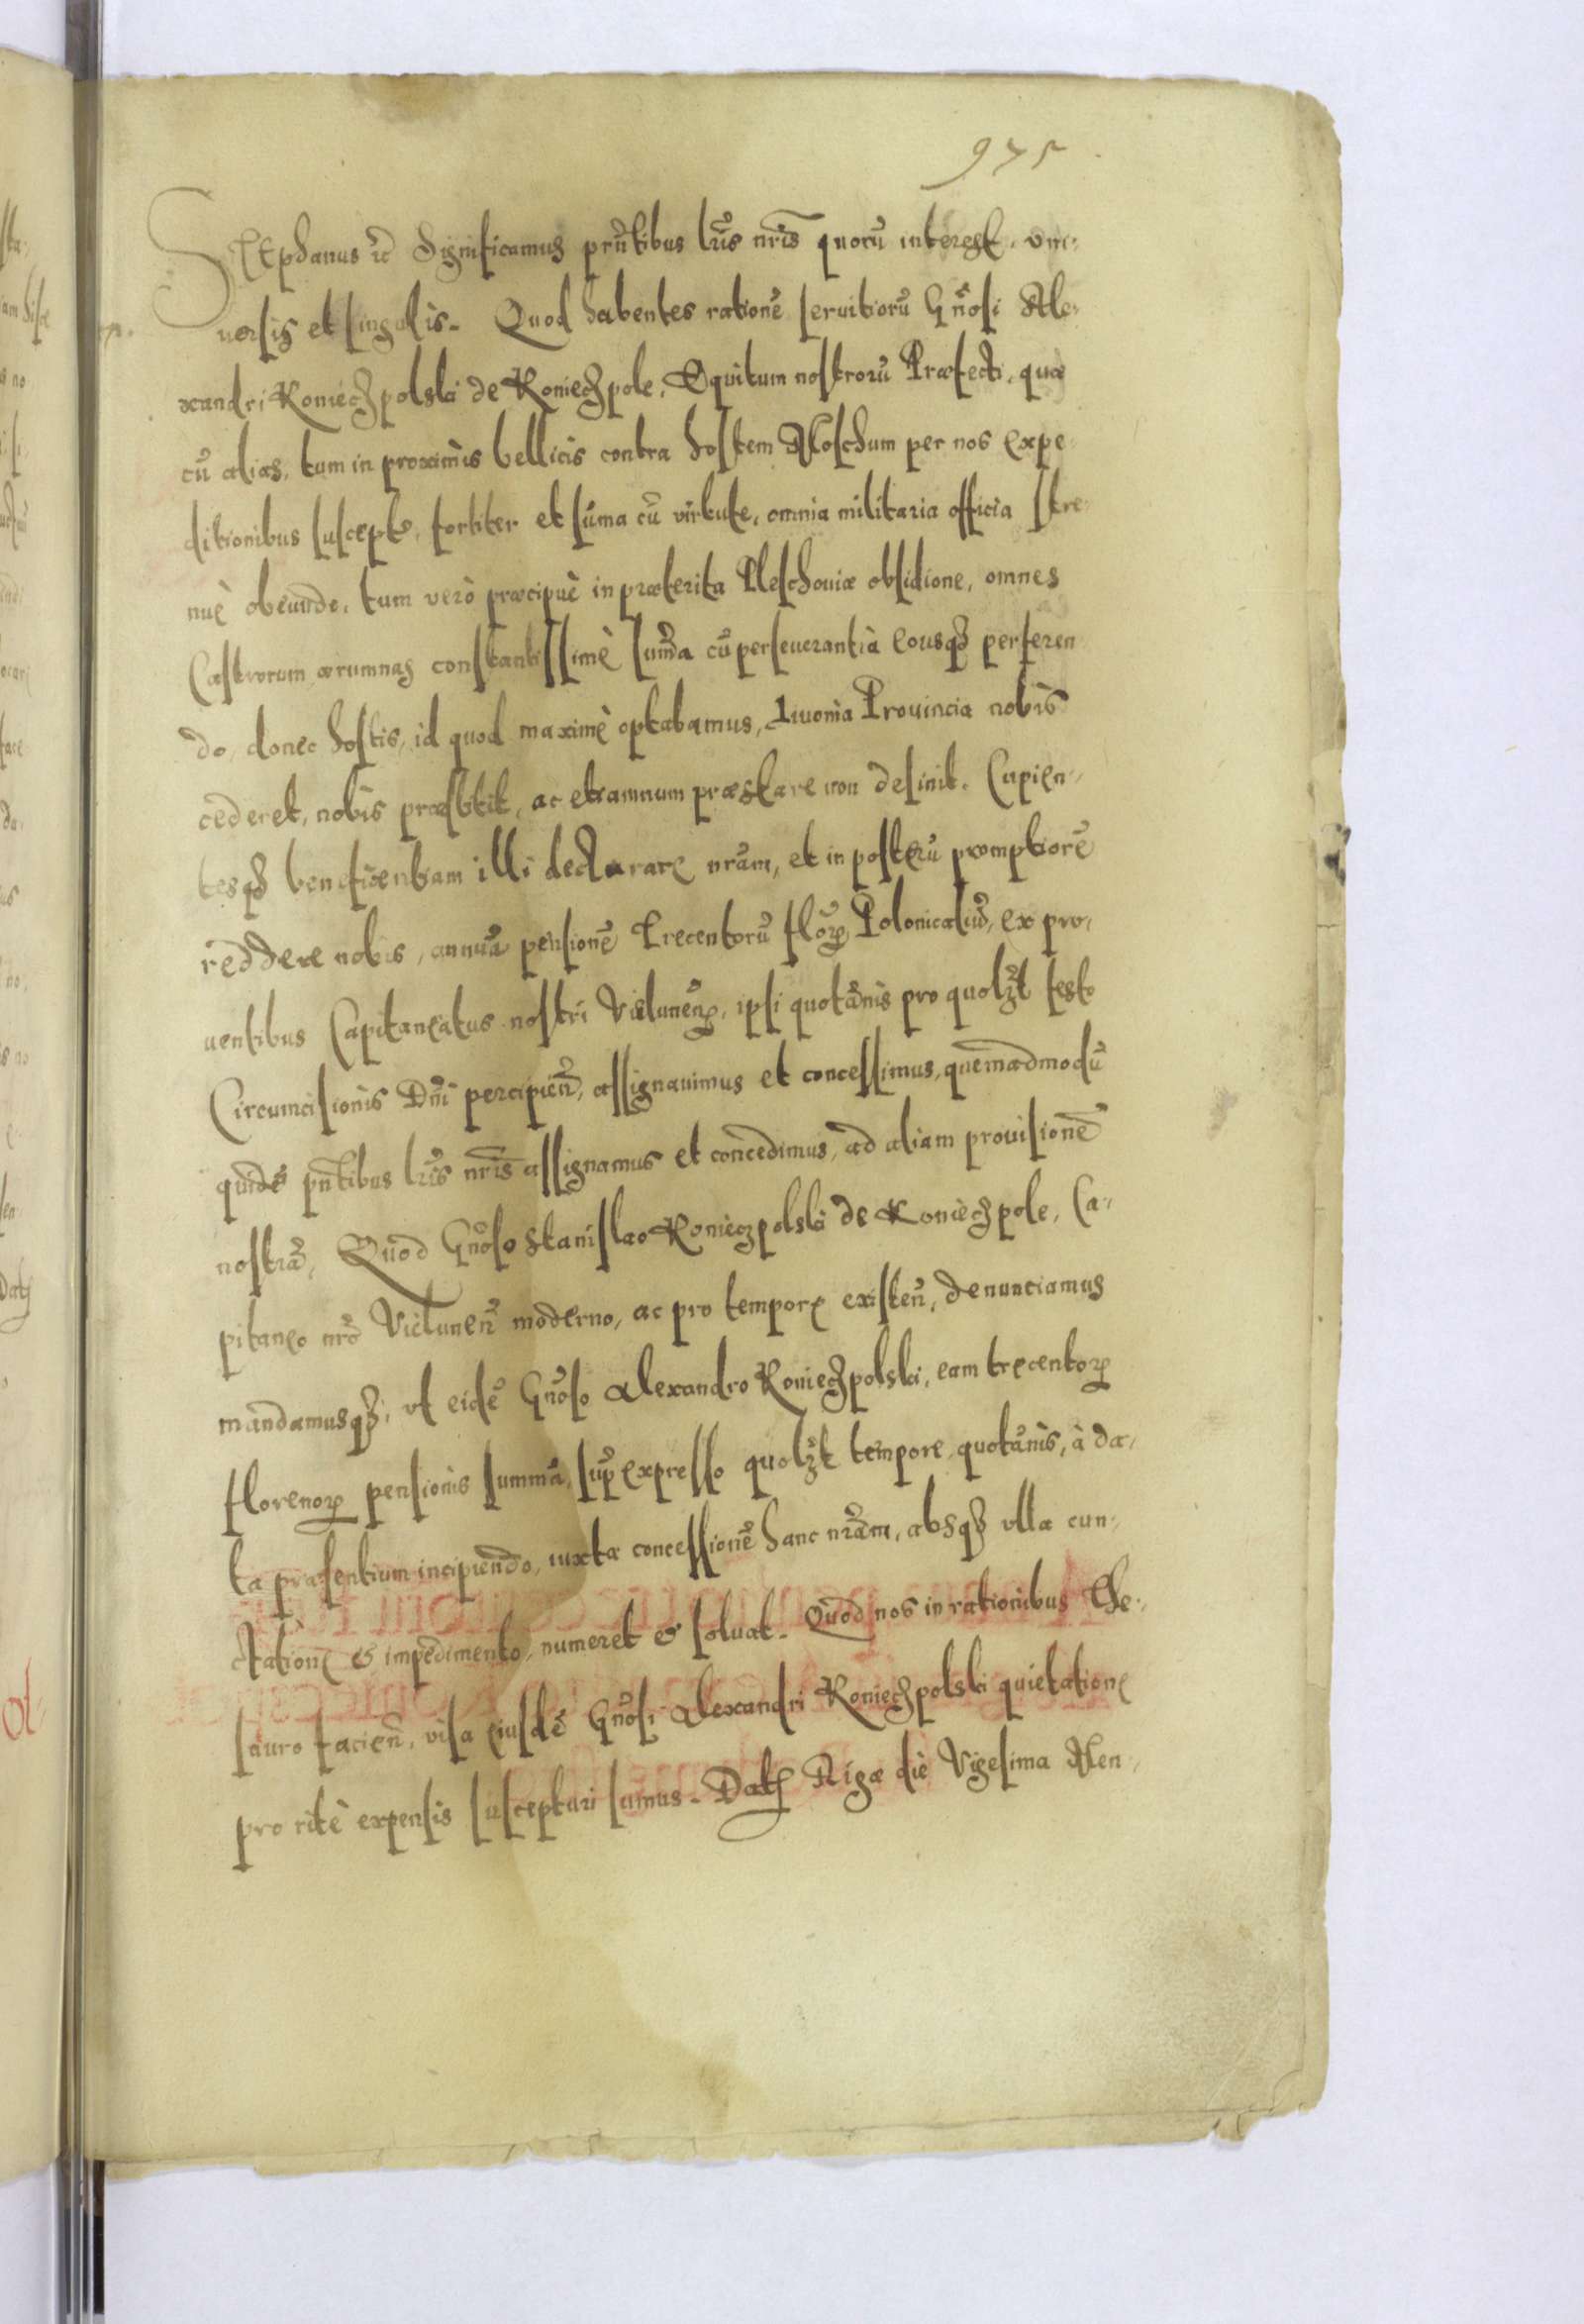 975
STEphanus etc̃ Significamus prñtibus lrĩs nrĩs quorũ interest, vni-
uersis et singulis. Quod habentes rationẽ seruitiorũ Gñosi Ale-
xandri Konieczpolski de Koniecpole, Equitum nostrorũ Præfecti, quæ
cũ alias, tum in proximis bellicis contra hostem Moschum per nos expe-
ditionibus susceptis, fortiter et sũma cũ virtute, omnia militaria officia stre-
nuè obeundo, tum verò præcipuè in præterita Pleschouiæ obsidione, omnes
Castrorum ærumnas constantissimè sum̃a cũ perseuerantià eousqz perferen
do, donec hostis, id quod maximè optabamus, Liuonia Prouincia nobis
cederet, nobis præstitit, ac etiamnum præstare non desinit. Cupien-
tesqz beneficentiam illi declarare nrãm, et in posterũ promptiorẽ
reddere nobis, annuã pensionẽ Trecentorũ florẽ Polonicaliũ, ex pro-
uentibus Capitaneatus nostri Vielunen̄, ipsi quotãnis pro quolzt festo
Circumcisionis Dñi percipieñ, assignauimus et concessimus, quemadmodũ
quidẽ pñtibus lrĩs nrĩs assignamus et concedimus, ad aliam prouisionẽ
nostrã, Quod Gñoso Stanislao Koniecpolski de Koniecpole, Ca-
pitaneo nrõ Vielunen̄ moderno, ac pro tempore existeñ, denunciamus
mandamusqz, vt eidẽ Gñoso Alexandro Koniecpolski, eam trecentorꝝ
florenorꝝ pensionis summã, sup̃expresso quolzt tempore quotãnis, à da-
ta præsentium incipiendo, iuxta concessionẽ hanc nrãm, absqz vlla cun-
ctatione et impedimento, numeret et soluat. Quod nos in rationibus The-
sauro facieñ, visa eiusdẽ Gñosi Alexandri Koniecpolski quietatione
pro ritè expensis suscepturi sumus. Datꝭ Rigæ die Vigesima Men-